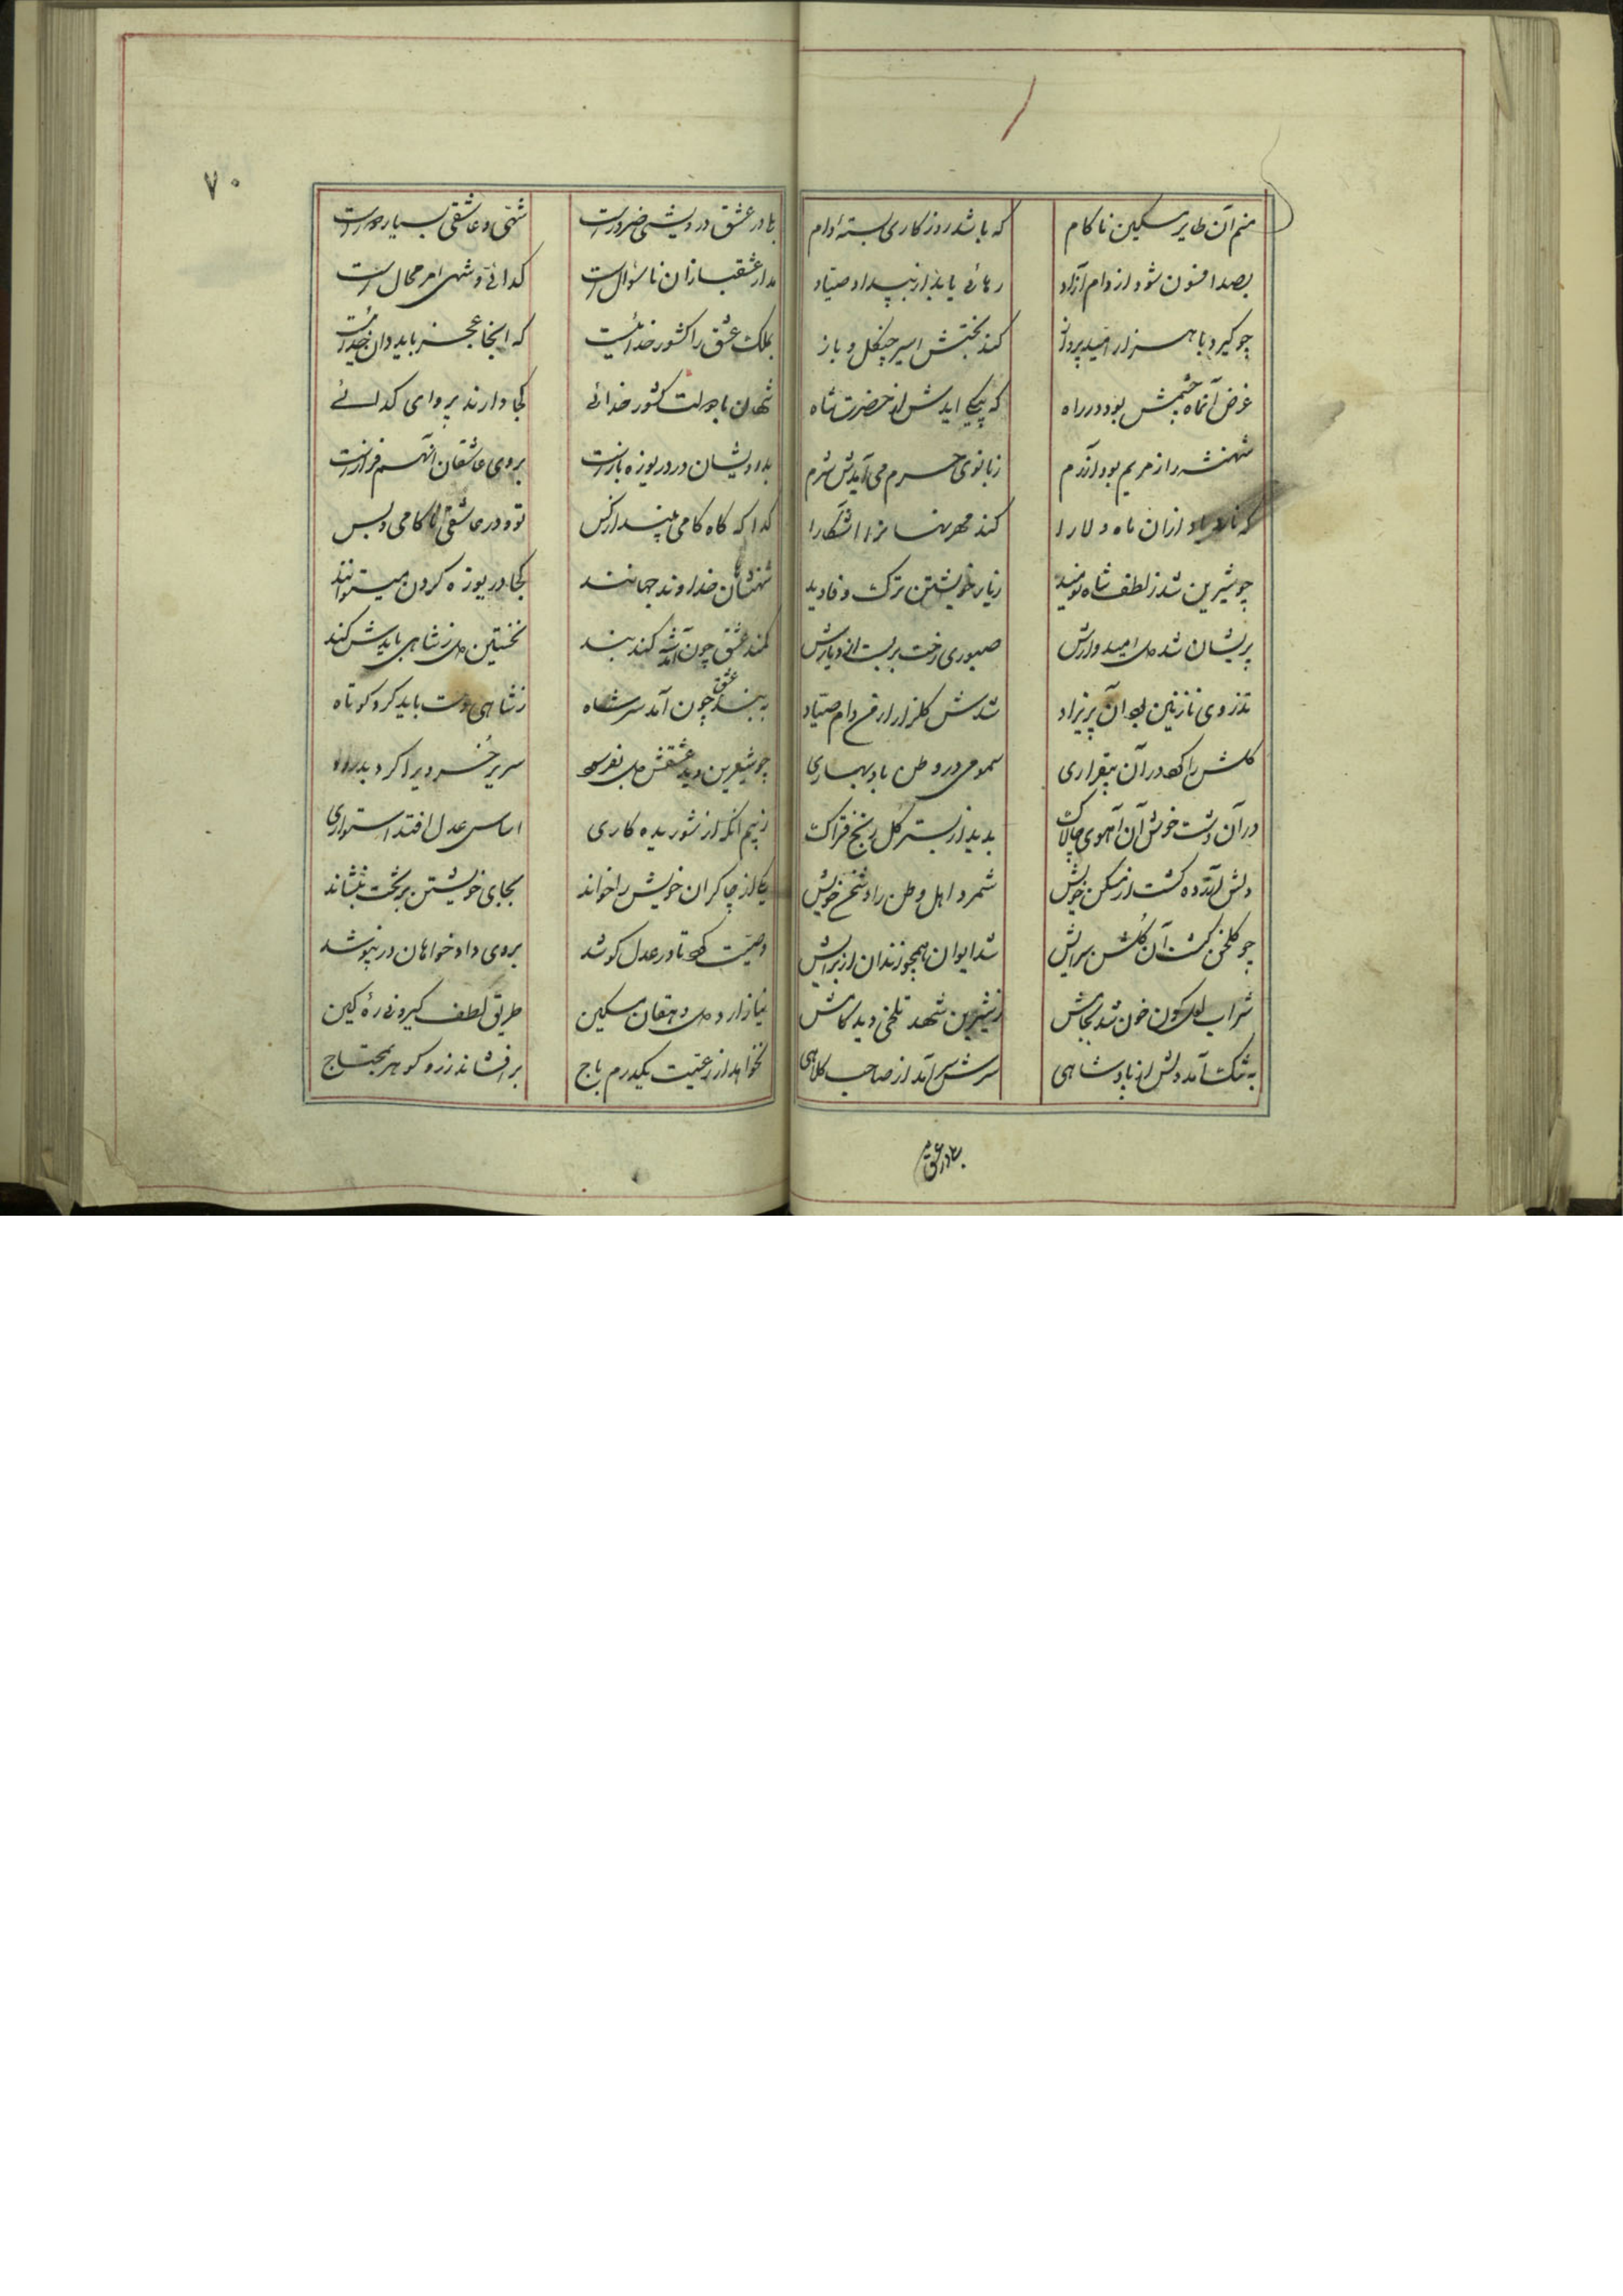 منم آن طایر مسکین ناکام
که باشد روزکاری بستهٔ دام
بصد افسون شود از دام آزاد
رهائی یابد از بیداد صیاد
چو کیرد با هزار امید پرواز
کند بختش اسیر چنکل و باز
غرض آنماه چشمش بود در راه
که پیکی ایدش از حضرت شاه
شهنشه را ز مریم بود آزرم
ز بانوی حرم می آیدش شرم
از ان ماه دلارا
کند مهر نهانرا اشکارا
چو شیرین شد ز لطف شاه نومید
ز یار خویشتن ترک وفا دید
پریشان شد دل امیدوارش
صبوری رخت بربست از دیارش
تذروی نازنین بود آن پریزاد
شدش کلزار از غم دام صیاد
کلش را کرد در آن بیقراری
سمومی در وطن باد بهاری
در آن دشت خوش آن آهوی چالاک
بدید از بستر کل رنج فتراک
دلش آزرده کشت از مسکن خویش
شمرد اهل وطن را دشمن خویش
چو کلخن کشت آن کلشن سرایش
شد ایوان همچو زندان از برایش
شراب لعل کون خون شد بجامش
ز شیرین شهد تلخی دید کامش
به تنک آمد دلش از پادشاهی
سرش سیر آمد از صاحب کلاهی
بهادر عشق
۷۰
بها در عشق درویشی ضرورست
شهی و عاشقی بسیار دورست
مدار عشقبازان با سؤال است
کدائی و شهی امر محال است
بملک عشق را کشور خدائیست
که اینجا عجز باید
شهان با دولت کشور خدائی
کجا دارند پروای کدائی
بدرویشان در دریوزه بازست
بروی عاشقان آنهم فرازست
کدا که کاه کامی بیند از کس
تو و در عاشقی ناکامی و بس
شهنشاهان خداوند جهانند
کجا دریوزه کردن میتوانند
کمند عشق چون آمد کند بند
نخستین دل ز شاهی بایدش کند
به بند عشق چون آمد سر شاه
ز شاهی دست باید کرد کوتاه
چو شیرین دید عشقش دل بفرسود
سریر خسرویرا کرد بدرود
ز بیم آنکه از شوریده کاری
اساس عدل افتد ز استواری
یکی از چاکران خویش را خواند
بجای خویشتن بر تخت بنشاند
وصیت کرد تا در عدل کوشد
بروی دادخواهان در نپوشد
نیازارد دل دهقان مسکین
طریق لطف کیرد نی رهٔ کین
نخواهد از رعیت یکدرم باج
بر افشاند زر و کوهر بمحتاج